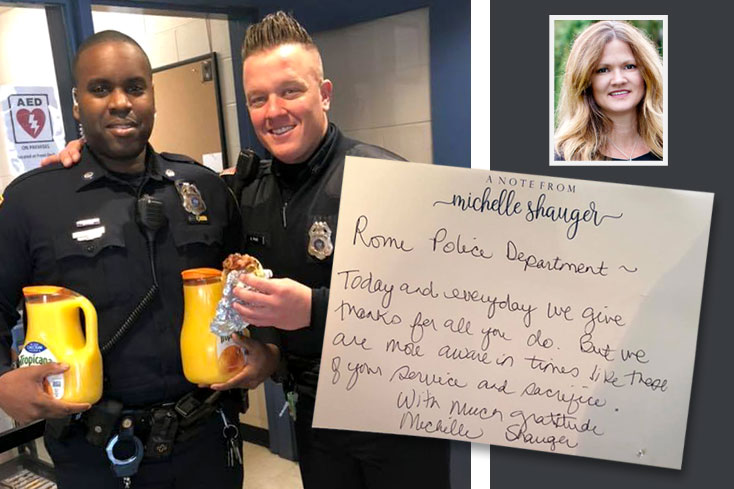 AED
A NOTE FROM
michelle shauger
Rome Police Department ~
Today and everyday we give
thanks for all you do. But we
are more aware in times like these
of your service and sacrifice.
With much gratitude
Michelle Shauger
Tropicana